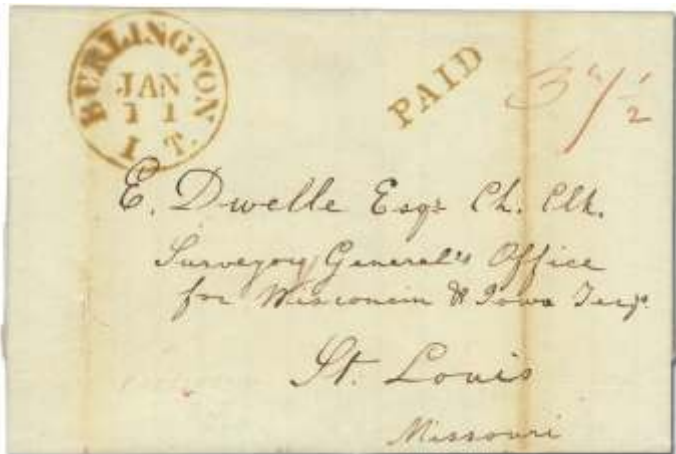 BURLINGTON
JAN
11
I. T.
PAID
E. Dwelle Esqr Ch. Clk.
Surveyory General's Office
for Wisconsin & Iowa Terys.
St. Louis
Missouri